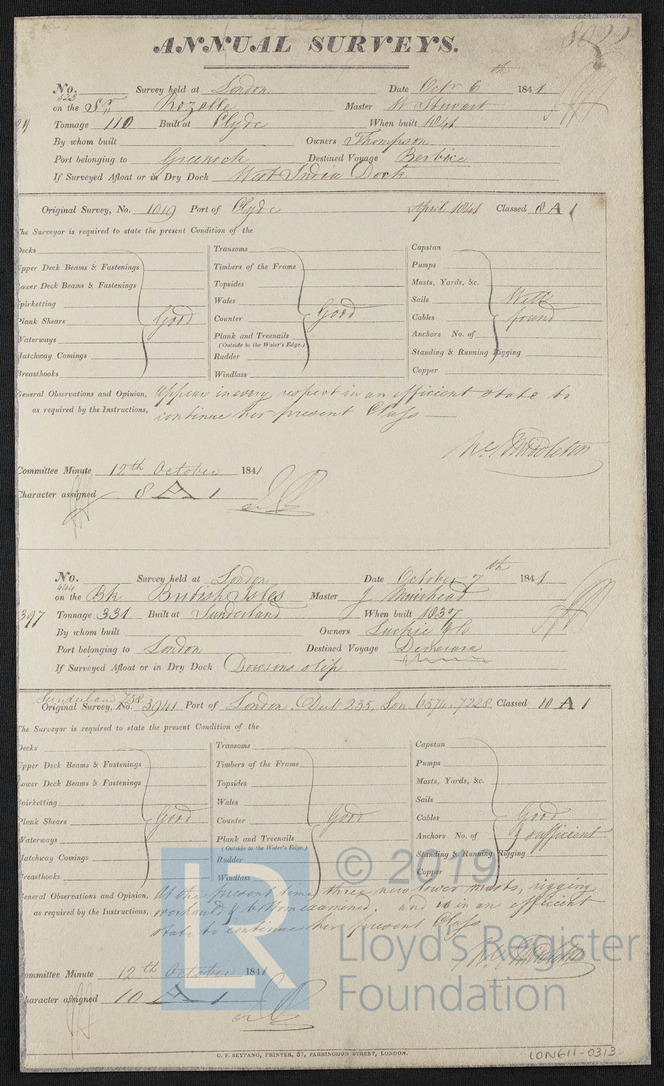 ANNUAL SURVEYS.
No. 523 Survey held at London Date Octr 6th 1841
on the Sr Rozelle Master W Stewart
Tonnage 110 Built at Clyde When built 1841
By whom built Owners Thompson
Port belonging to Greenock Destined Voyage Berbice
If Surveyed Afloat or in Dry Dock West India Dock
Original Survey, No. 1019 Port of Clyde April 1841 Classed 8 A 1
The Surveyor is required to state the present Condition of the
Decks Transoms Capstan
Upper Deck Beams & Fastenings Timbers of the Frame Pumps
Lower Deck Beams & Fastenings Topsides Masts, Yards, &c.
Spirketting Wales Sails Well
Plank Shears Good Counter Good Cables found
Waterways Plank and Treenails Anchors No. of
(Outside to the Water's Edge.)
Hatchway Comings Rudder Standing & Running Rigging
Breasthooks Windlass Copper
General Observations and Opinion, Appears in every respect in an efficient state to
as required by the Instructions, continue her present Class
Wm Middleton
Committee Minute 12th October 1841
Character assigned 8 A 1
No. 444 Survey held at London Date October 7th 1841
on the Bk British Isles Master J Muirhead
397 Tonnage 331 Built at Sunderland When built 1837
By whom built Owners Luckie & Co
Port belonging to London Destined Voyage Demerara
If Surveyed Afloat or in Dry Dock Dowsons slip
Sunderland 758
Original Survey, No. 3941 Port of London. Dubl 255, Lon 6574.7228 Classed 10 A 1
The Surveyor is required to state the present Condition of the
Decks Transoms Capstan
Upper Deck Beams & Fastenings Timbers of the Frame Pumps
Lower Deck Beams & Fastenings Topsides Masts, Yards, &c.
Spirketting Wales Sails
Plank Shears Good Counter Good Cables Good
Waterways Plank and Treenails Anchors No. of & sufficient
(Outside to the Water's Edge.)
Hatchway Comings Rudder Standing & Running Rigging
Breasthooks Windlass Copper
General Observations and Opinion, At the present time three new lower masts, rigging
as required by the Instructions, overhauld & bottom examined. and is in an efficient
state to continue her present Class
Wm Middleton
Committee Minute 12th October 1841
Character assigned 10 A 1
LR
© 2019
Lloyd's Register
Foundation
C. F. SEYFANG, PRINTER, 57, FARRINGDON STREET, LONDON.
LON611-0313